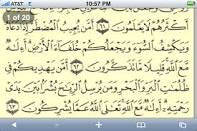 AT&T 10:57 PM
1 of 20
أَكْثَرُهُمْ لَا يَعْلَمُونَ ٦١ أَمَّن يُجِيبُ الْمُضْطَرَّ إِذَا دَعَاهُ
وَيَكْشِفُ السُّوءَ وَيَجْعَلُكُمْ خُلَفَاءَ الْأَرْضِ أَءِلَٰهٌ
مَّعَ اللَّهِ قَلِيلًا مَّا تَذَكَّرُونَ ٦٢ أَمَّن يَهْدِيكُمْ فِي
ظُلُمَٰتِ الْبَرِّ وَالْبَحْرِ وَمَن يُرْسِلُ الرِّيَٰحَ بُشْرًا بَيْنَ يَدَيْ
رَحْمَتِهِ أَءِلَٰهٌ مَّعَ اللَّهِ تَعَٰلَى اللَّهُ عَمَّا يُشْرِكُونَ ٦٣